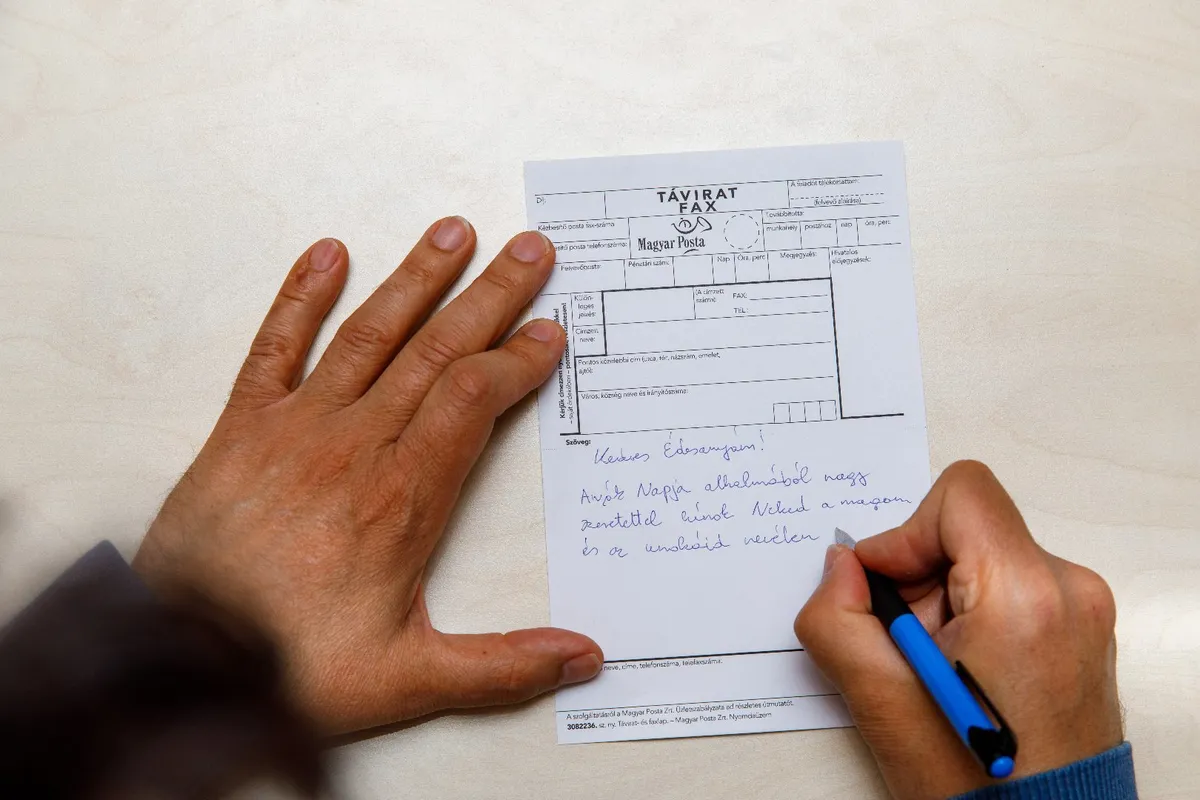 Díj:
TÁVIRAT
FAX
A feladót tájékoztattam:
(felvevő aláírása)
Kézbesítő posta fax-száma
posta telefonszáma:
Magyar Posta
Továbbította:
munkahely
postához
nap
óra, perc
Felvevőposta:
Pénztári szám:
Nap
Óra, perc
Megjegyzés:
Hivatalos
följegyzések:
Külön-
leges
jelzés:
(A címzett
száma)
FAX:
TEL.:
Címzett
neve:
Pontos közelebbi cím (utca, tér, házszám, emelet,
ajtó):
Város, község neve és irányítószáma:
Kérjük címezzen
– saját érdekében – pontosan, részletesen!
Szöveg:
Kedves Édesanyám!
Anyák Napja alkalmából nagy
szeretettel kívánok Neked a magam
és az unokáid nevében
neve, címe, telefonszáma, telefaxszáma:
A szolgáltatásról a Magyar Posta Zrt. Üzletszabályzata ad részletes útmutatót.
3082236. sz. ny. Távirat- és faxlap. – Magyar Posta Zrt. Nyomdaüzem